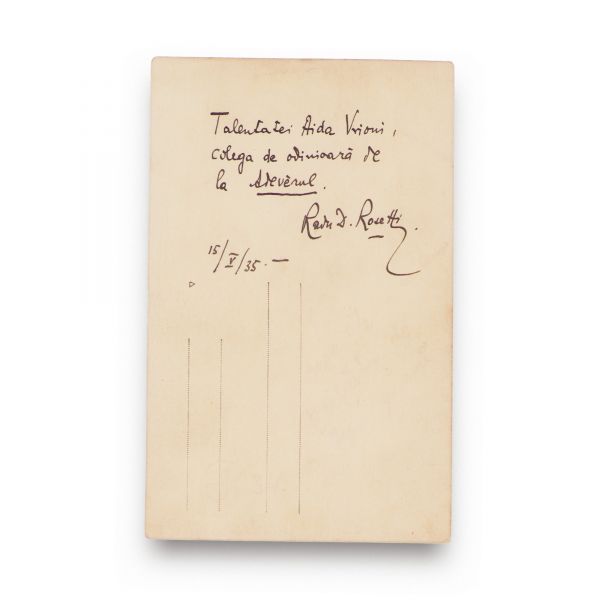 Talentatei Aida Vrioni,
colega de odinioară de
la Adevĕrul.
Radu D. Rosetti.
15/V/35.—